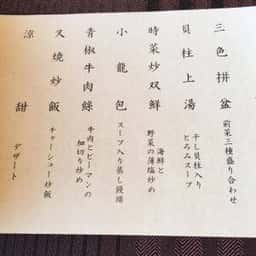 三色拼盆
前菜三種盛り合わせ
貝柱上湯
干し貝柱入り
とろみスープ
時菜炒双鮮
海鮮と
野菜の薄塩炒め
小龍包
スープ入り蒸し饅頭
青椒牛肉絲
牛肉とピーマンの
細切り炒め
叉焼炒飯
チャーシュー炒飯
涼甜
デザート